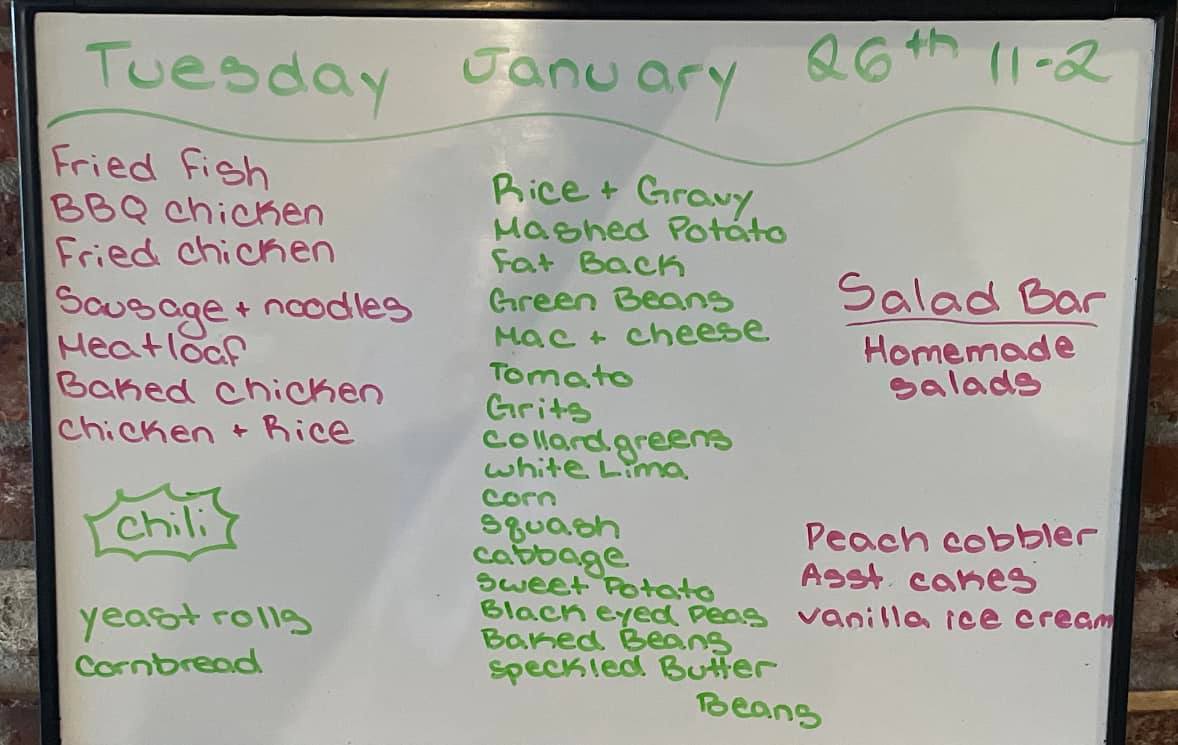 Tuesday January 26th 11-2
Fried fish
BBQ chicken
Fried chicken
Sausage + noodles
Meatloaf
Baked chicken
chicken + Rice
chili
yeast rolls
cornbread
Rice + Gravy
Mashed Potato
Fat Back
Green Beans
Mac + cheese
Tomato
Grits
collard greens
white Lima
corn
squash
cabbage
sweet Potato
Black eyed Peas
Baked Beans
speckled Butter
Beans
Salad Bar
Homemade
salads
Peach cobbler
Asst. cakes
vanilla ice cream